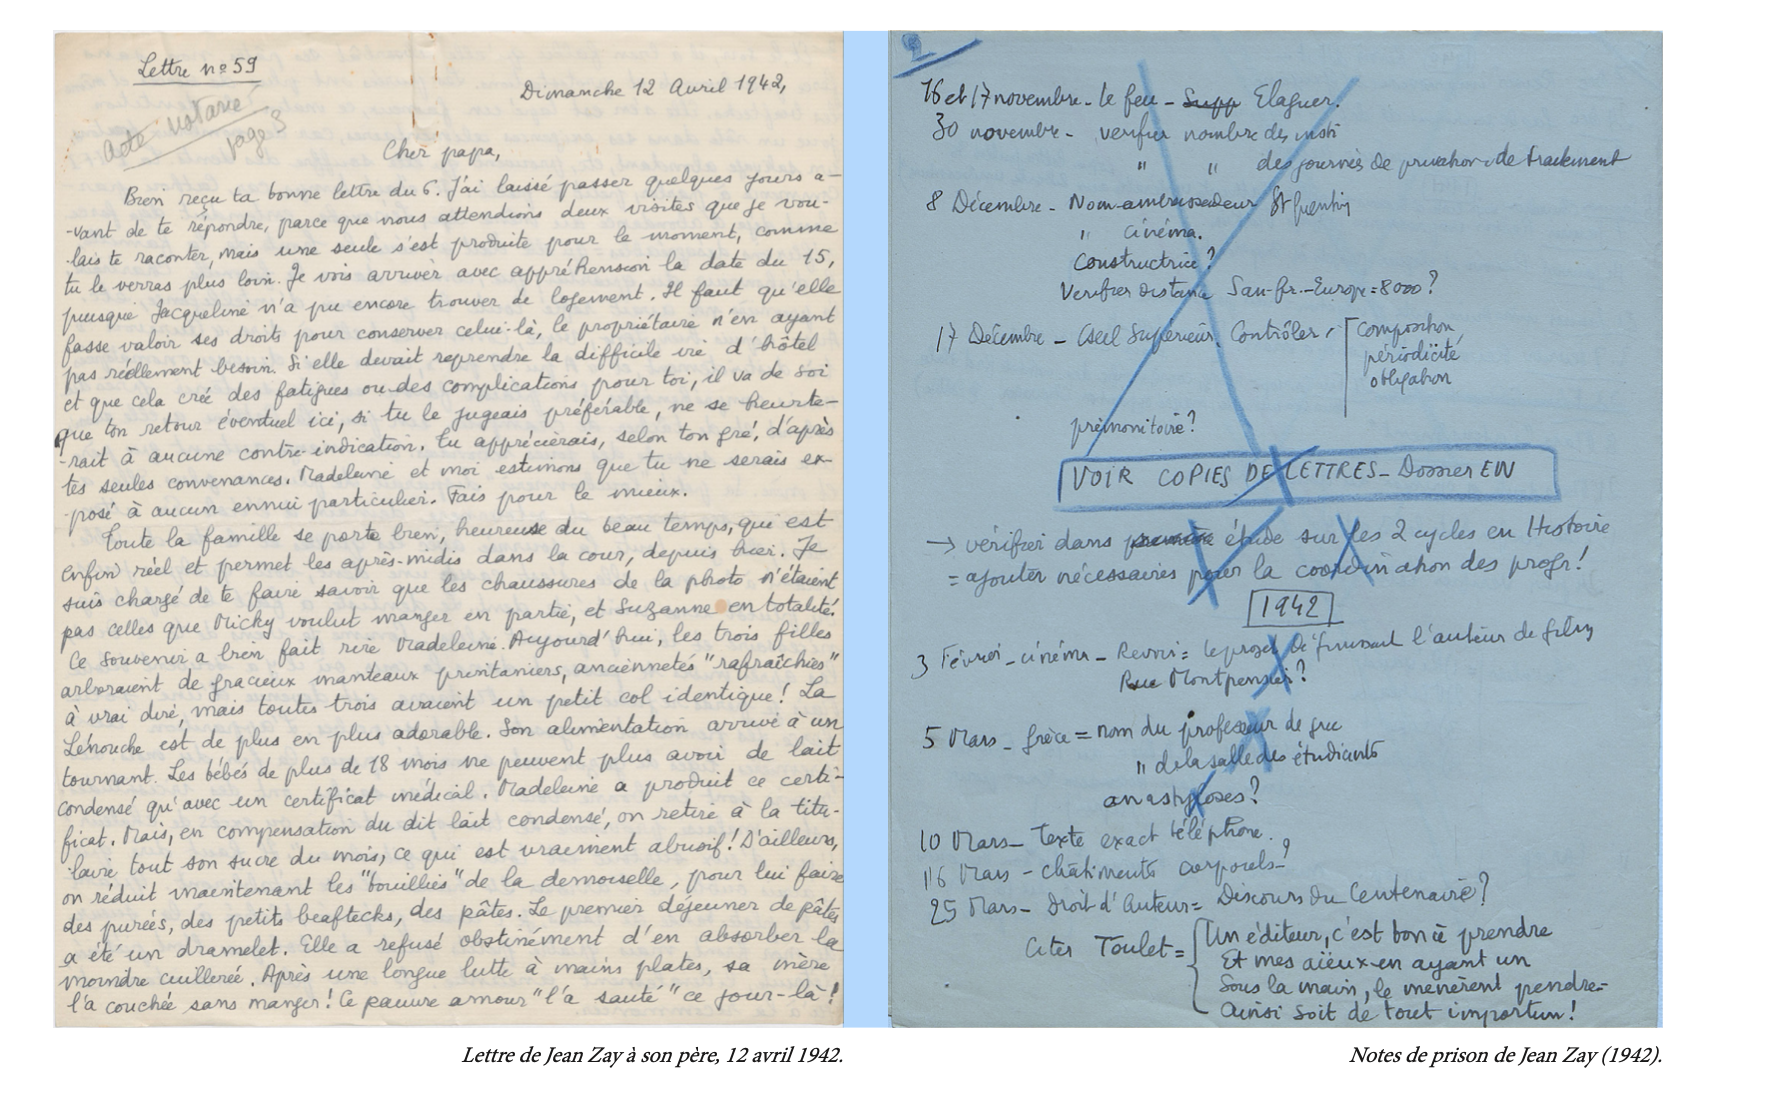 Lettre nº 59
Acte notarié
page 3
Dimanche 12 Avril 1942,
Cher papa,
Bien reçu ta bonne lettre du 6. J'ai laissé passer quelques jours a-
-vant de te répondre, parce que nous attendions deux visites que je vou-
-lais te raconter, mais une seule s'est produite pour le moment, comme
tu le verras plus loin. Je vois arriver avec appréhension la date du 15,
puisque Jacqueline n'a pu encore trouver de logement. Il faut qu'elle
fasse valoir ses droits pour conserver celui-là, le propriétaire n'en ayant
pas réellement besoin. Si elle devait reprendre la difficile vie d'hôtel
et que cela créé des fatigues ou des complications pour toi, il va de soi
que ton retour éventuel ici, si tu le jugeais préférable, ne se heurte-
-rait à aucune contre-indication. Tu apprécierais, selon ton gré, d'après
tes seules convenances. Madeleine et moi estimons que tu ne serais ex-
-posé à aucun ennui particulier. Fais pour le mieux.
Toute la famille se porte bien, heureuse du beau temps, qui est
enfin réel et permet les après-midis dans la cour, depuis hier. Je
suis chargé de te faire savoir que les chaussures de la photo n'étaient
pas celles que Micky voulut manger en partie, et Suzanne en totalité.
Ce souvenir a bien fait rire Madeleine. Aujourd'hui, les trois filles
arboraient de gracieux manteaux printaniers, anciennetés "rafraîchies"
à vrai dire, mais toutes trois avaient un petit col identique! La
Lénouche est de plus en plus adorable. Son alimentation arrive à un
tournant. Les bébés de plus de 18 mois ne peuvent plus avoir de lait
condensé qu'avec un certificat médical. Madeleine a produit ce certi-
ficat. Mais, en compensation du dit lait condensé, on retire à la titu-
-laire tout son sucre du mois, ce qui est vraiment abusif! D'ailleurs,
on réduit maintenant les "bouillies" de la demoiselle, pour lui faire
des purées, des petits beaftecks, des pâtes. Le premier déjeuner de pâtes
a été un dramelet. Elle a refusé obstinément d'en absorber la
moindre cuillerée. Après une longue lutte à mains plates, sa mère
l'a couchée sans manger! Ce pauvre amour "l'a sauté" ce jour-là!
Lettre de Jean Zay à son père, 12 avril 1942.
2
16 et 17 novembre - le feu - Supp Elaguer.
30 novembre - vérifier nombre des insti
" " des journées de privation de traitement
8 Décembre - Nom ambassadeur St Quentin
" cinéma.
Constructrice?
Verifier distance San-Fr.-Europe = 8000?
17 Décembre - Cseil Supérieur. Contrôler composition,
périodicité
obligation
prémonitoire?
VOIR COPIES DE LETTRES - Dossier EIN
→ vérifier dans étude sur les 2 cycles en Histoire
= ajouter nécessaires pour la coordination des progr!
1942
3 Février - cinéma - Revoir = le projet définissant l'auteur de film
Rue Montpensier?
5 Mars - Grèce = nom du professeur de grec
" de la salle des étudiants
anastyloses?
10 Mars - Texte exact téléphone.
16 Mars - châtiments corporels?
25 Mars - Droit d'Auteur = Discours du Centenaire?
Citer Toulet = Un éditeur, c'est bon à prendre
Et mes aïeux en ayant un
Sous la main, le menèrent pendre -
Ainsi soit de tout importun!
Notes de prison de Jean Zay (1942).